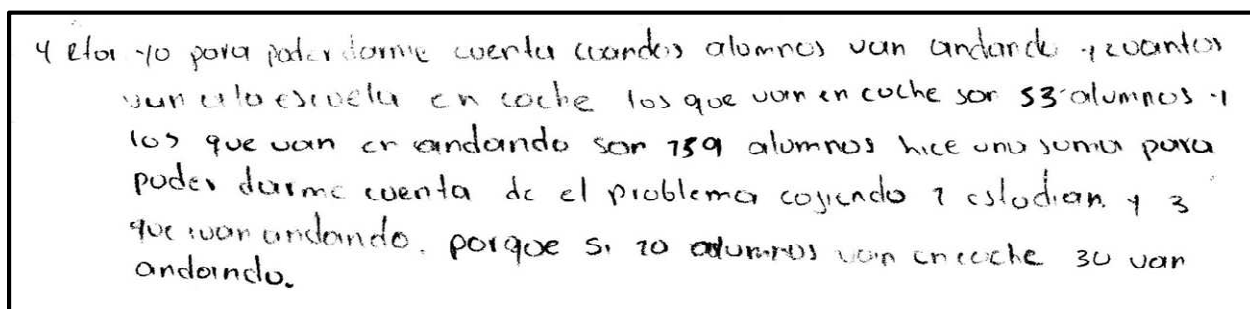 yo para poder darme cuenta cuandos alumnos van andando y cuantos
van a la escuela en coche los que van en coche son 53 alumnos y
los que van en andando son 159 alumnos hice una suma para
poder darme cuenta de el problema cojiendo 1 estudian y 3
que ivan andando. porque si 10 alumnos van en coche 30 van
andando.